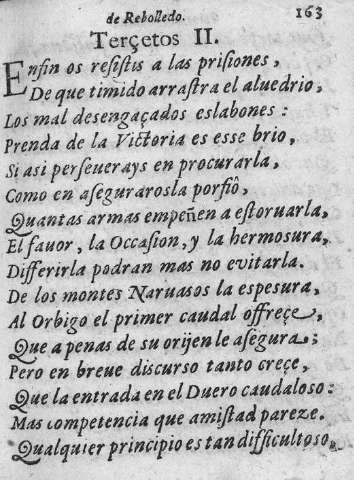 de Rebolledo. 163
Terçetos II.
Enfin os resistis a las prisiones,
De que timido arrastra el aluedrio,
Los mal desengaçados eslabones:
Prenda de la Victoria es esse brio,
Si asi perseuerays en procurarla,
Como en asegurarosla porfiô,
Quantas armas empeñen a estoruarla,
El fauor, la Occasion, y la hermosura,
Differirla podran mas no evitarla.
De los montes Naruasos la espesura,
Al Orbigo el primer caudal offreçe,
Que a penas de su orijen le asegura;
Pero en breue discurso tanto creçe,
Que la entrada en el Duero caudaloso:
Mas competencia que amistad pareze.
Qualquier principio es tan difficultoso,